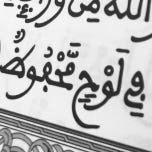 والله مِن و
فِي لَوْحٍ مَّحْفُوظٌ